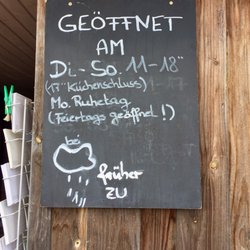 GEÖFFNET
AM
Di.-So. 11-18°°
(17°° Küchenschluss)
Mo. Ruhetag
(Feiertags geöffnet!)
bei
früher
ZU